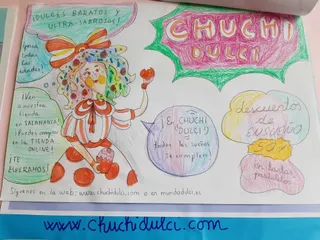 ¡DULCES BARATOS Y
ULTRA SABROSOS!
¡para
todas las
edades!
CHUCHI
DULCI
¡Ven
a nuestra
tienda
en SALAMANCA!
¡Puedes comprar
en la TIENDA
ONLINE!
¡TE
ESPERAMOS!
¡En CHUCHI
DULCI
todos los sueños
se cumplen!
descuentos
de
ENSUEÑO
50%
en
productos
Síguenos en la web: www.chuchidulci.com o en
www.chuchidulci.com